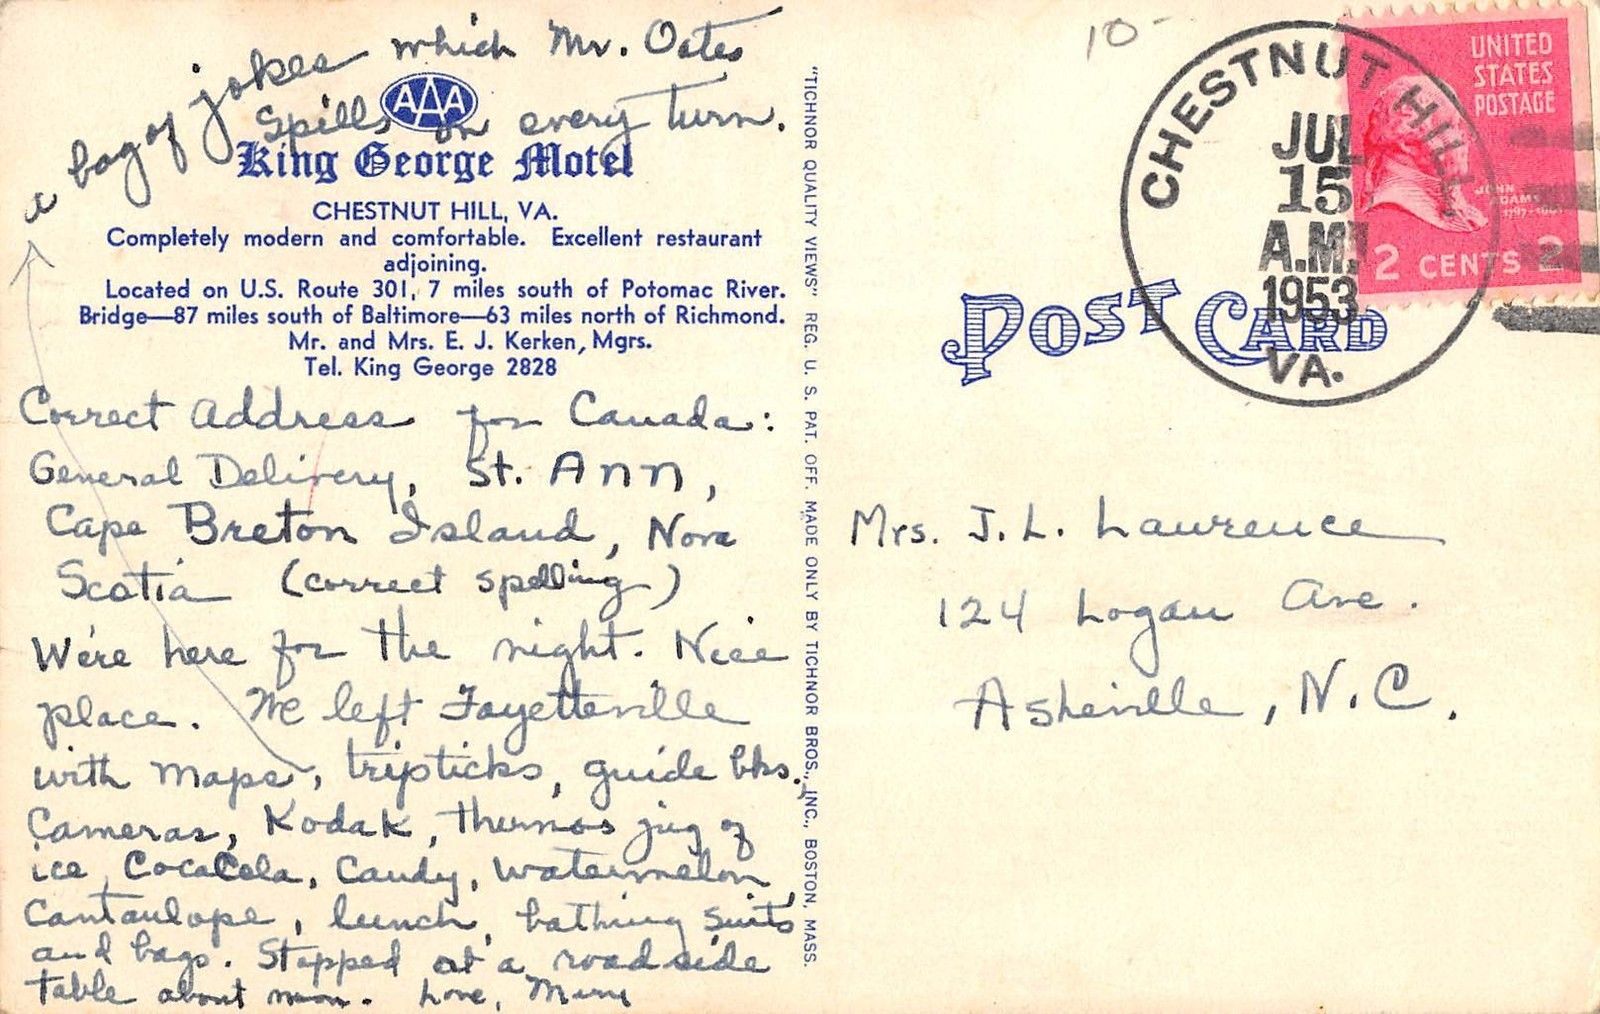 a bag of jokes which Mr. Oates
Spills on every turn.
AAA
King George Motel
CHESTNUT HILL, VA.
Completely modern and comfortable. Excellent restaurant
adjoining.
Located on U.S. Route 301, 7 miles south of Potomac River.
Bridge—87 miles south of Baltimore—63 miles north of Richmond.
Mr. and Mrs. E. J. Kerken, Mgrs.
Tel. King George 2828
Correct Address for Canada:
General Delivery, St. Ann,
Cape Breton Island, Nova
Scotia (correct spelling)
We're here for the night. Nice
place. We left Fayetteville
with maps, tripticks, guide bks.,
Cameras, Kodak, thermos jug of
ice, CocaCola, Candy, watermelon,
Cantaulope, lunch, bathing suits
and bags. Stopped at a roadside
table about noon. Love,
"TICHNOR QUALITY VIEWS" REG. U. S. PAT. OFF. MADE ONLY BY TICHNOR BROS., INC., BOSTON, MASS.
10-
CHESTNUT HILL,
JUL
15
A.M.
1953
VA.
UNITED
STATES
POSTAGE
JOHN
ADAMS
1797-1801
2 CENTS 2
POST CARD
Mrs. J. L. Lawrence
124 Logan Ave.
Asheville, N.C.